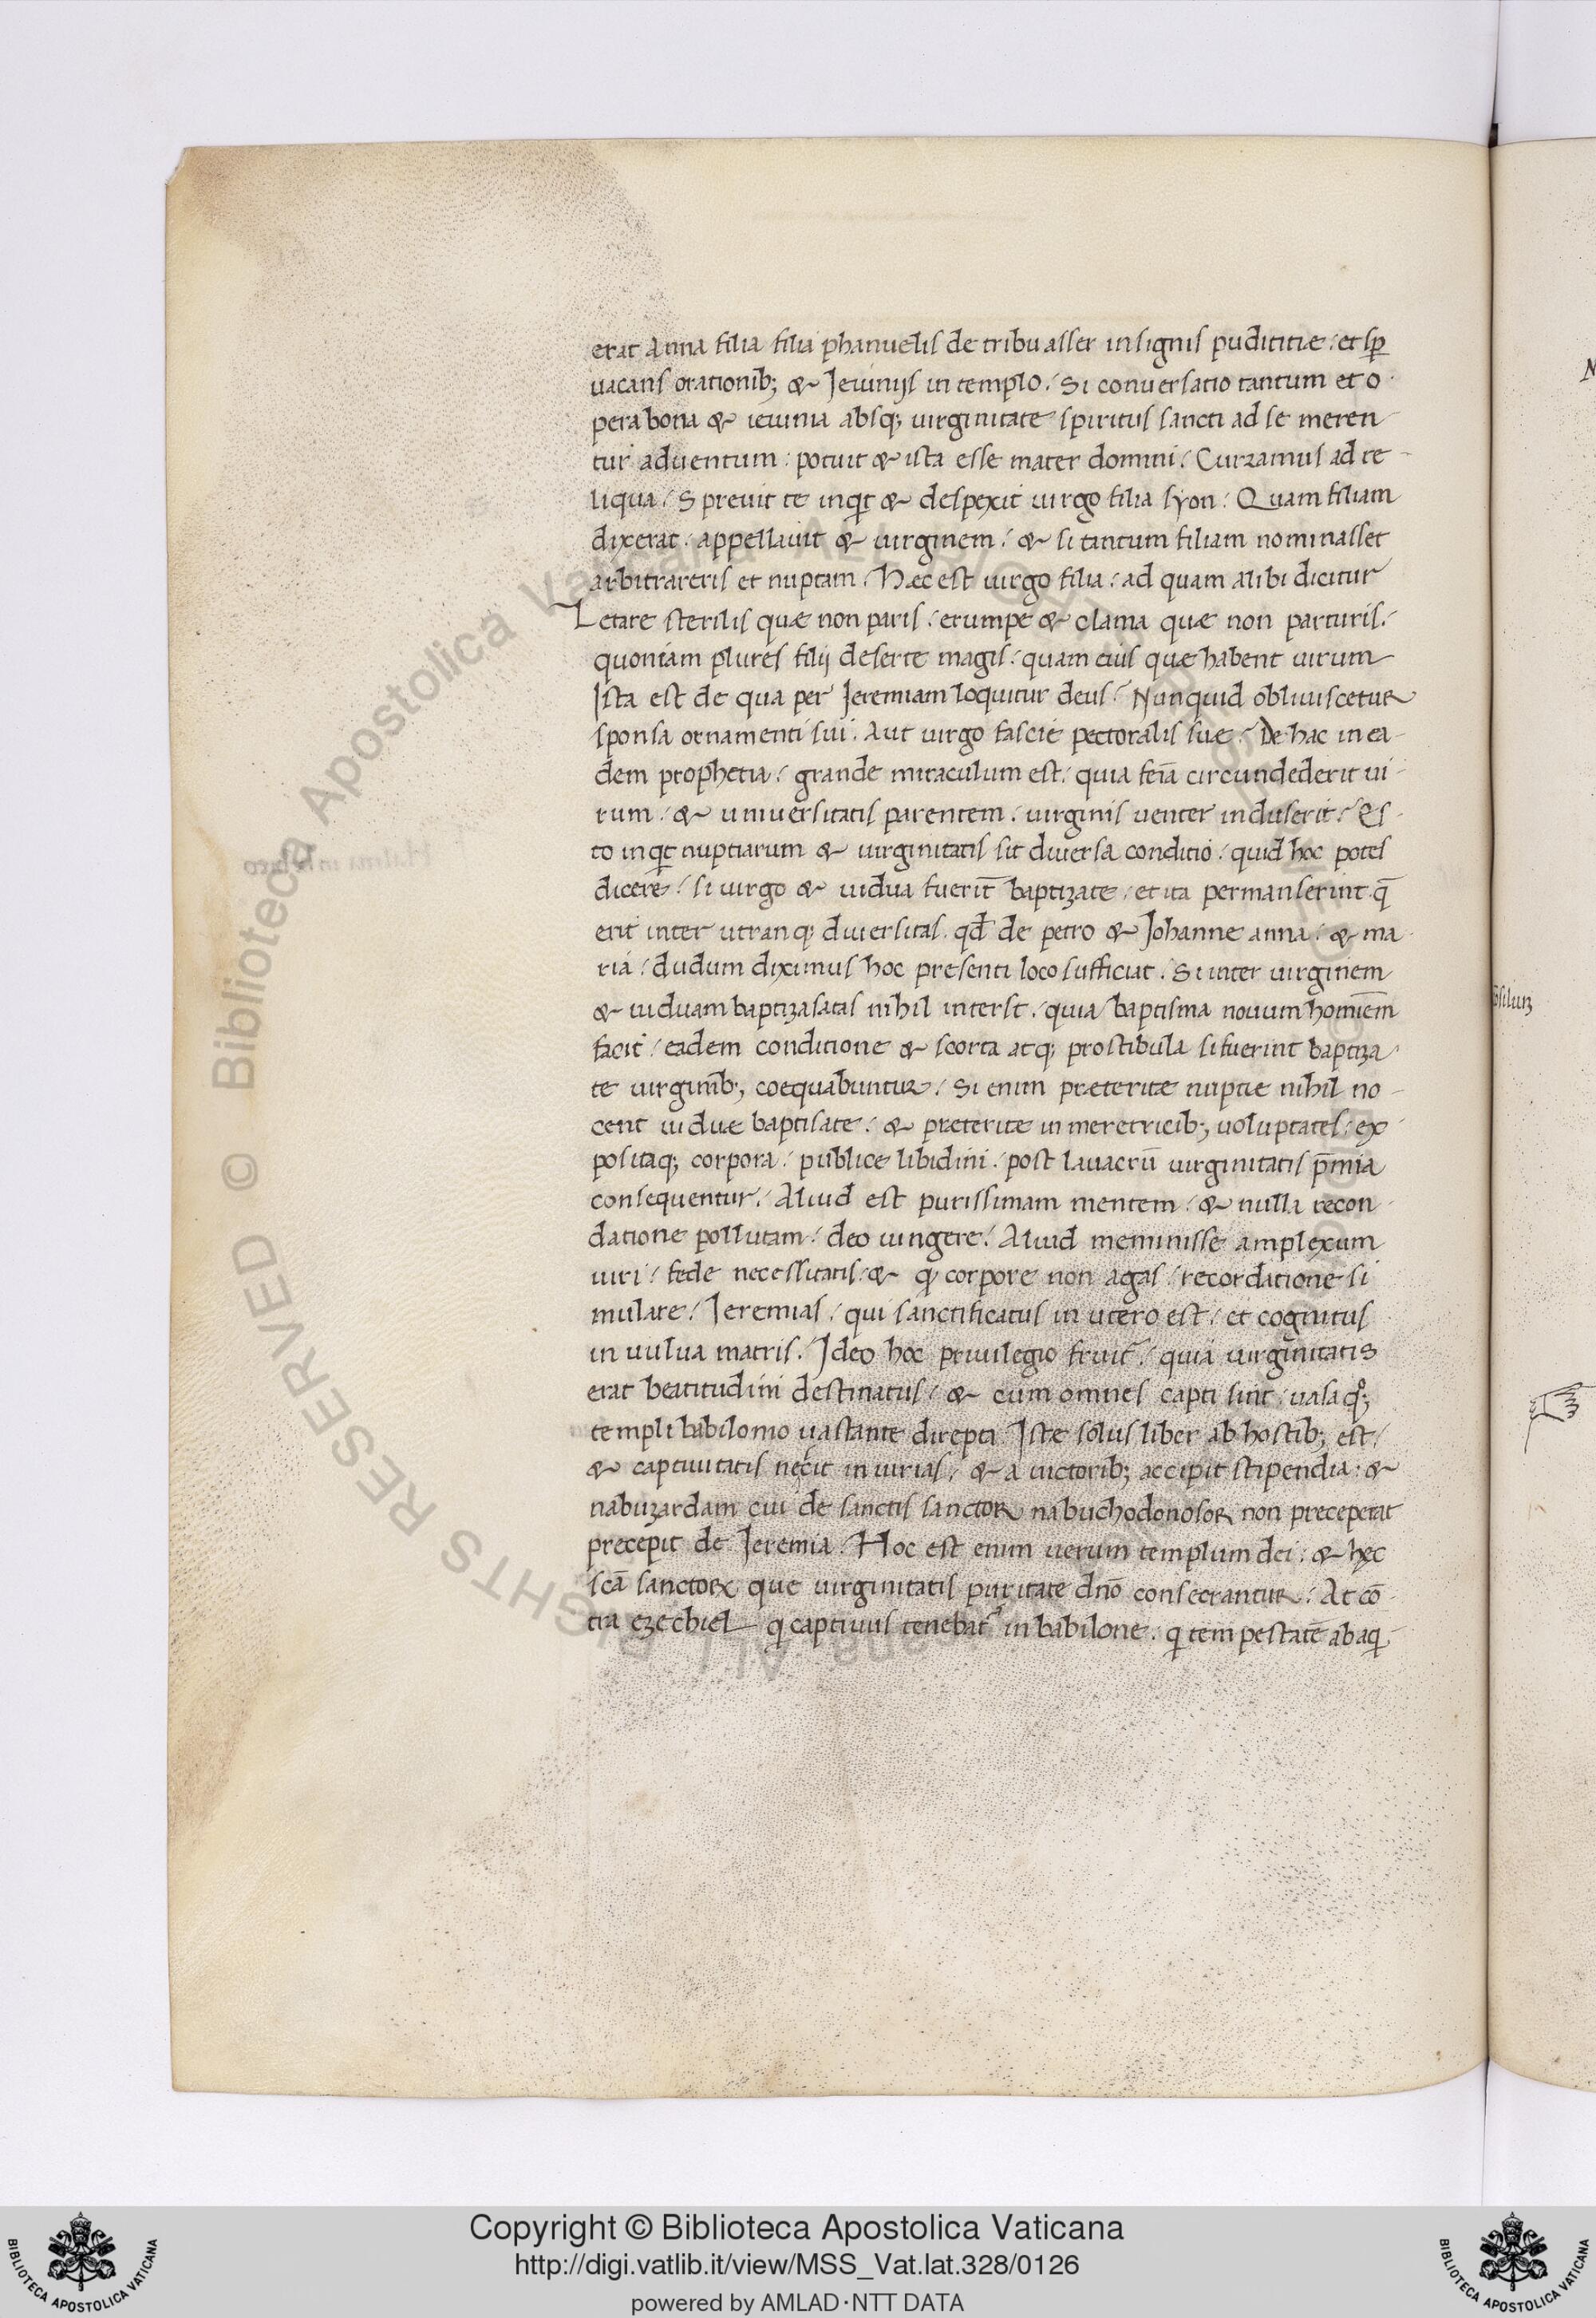 erat Anna filia filia phanuelis de tribu asser insignis pudititiæ: et sp̄
uacans orationib; & Ieiunijs in templo. Si conuersatio tantum et o
pera bona & ieiunia absq; uirginitate spiritus sancti ad se meren
tur aduentum: potuit & ista esse mater domini. Curramus ad re
liqua. Spreuit te inqͥt & despexit uirgo filia syon. Quam filiam
dixerat. appellauit & uirginem. & si tantum filiam nominasset
arbitrareris et nuptam. Hæc est uirgo filia. ad quam alibi dicitur
Letare sterilis quæ non paris. erumpe & clama quæ non parturis.
quoniam plures filij deserte magis. quam eius quæ habent uirum
Ista est de qua per Ieremiam loquitur deus. Nunquid obliuiscetur
sponsa ornamenti sui. Aut uirgo fascie pectoralis suæ. De hac in ea
dem prophetia. grande miraculum est. quia feīa circundederit ui
rum. & uniuersitatis parentem. uirginis uenter incluserit. Es
to inqͥt nuptiarum & uirginitatis sit diuersa conditio. quid hoc potes
dicere. si uirgo & uidua fuerīt baptizate. et ita permanserint. q̄
erit inter utranq; diuersitas. qd̄ de petro & Johanne anna. & ma
ria. dudum diximus hoc presenti loco sufficiat. Si inter uirginem
& uiduam baptizasatas nihil interst. quia baptisma nouum homiēm
facit. eadem conditione & scorta atq; prostibula si fuerint baptiza
te uirginib; coequabuntur. Si enim præteritæ nuptie nihil no
cent uiduæ baptisate. & præteritæ in meretricib; uoluptates. ex
positaq; corpora. publice libidini. post lauacrū uirginitatis p̄mia
consequentur. Aliud est purissimam mentem. & nulla recon
datione pollutam. deo iungere. Aliud meminisse amplexum
uiri. fede necessitatis. & q̨ corpore non agas. recordatione si
mulare. Ieremias. qui sanctificatus in utero est. et cognitus
in uulua matris. Ideo hoc priuilegio fruit᷑. quia uirginitatis
erat beatitudini destinatus. & cum omnes capti sint. uasa qͦ;
templi babilonio uastante direpti. Iste solus liber ab hostib; est.
& captiuitatis nęcit iniurias. & a uictorib; accipit stipendia: &
nabuzardam cui de sanctis sanctoꝝ nabuchodonosor non preceperat
precepit de Ieremia. Hoc est enim uerum templum dei. & hęc
scā sanctoꝝ que uirginitatis puritate dnō consecrantur. At cō
tra ezechiel q captiuus tenebat᷑ in babilone. q tempestatē ab aqͥ